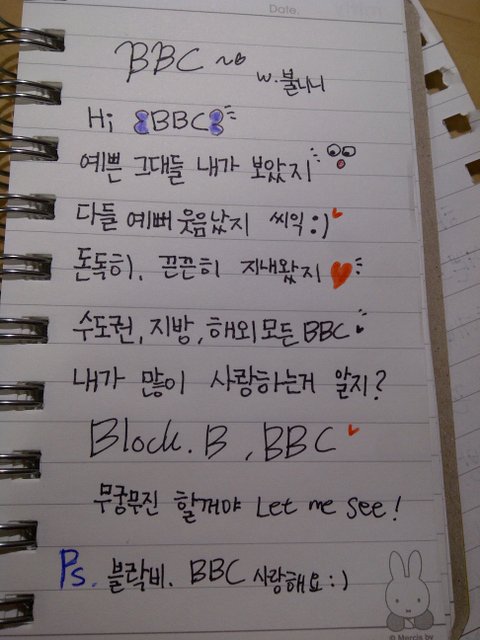 Date.
BBC ~
w. 불나니
Hi BBC
예쁜 그대들 내가 보았지
다들 예뻐 웃음났지 씨익 :)
돈독히, 끈끈히 지내왔지
수도권, 지방, 해외 모든 BBC
내가 많이 사랑하는거 알지?
Block. B, BBC
무궁무진 할꺼야 Let me see!
Ps. 블락비. BBC 사랑해요 :)
© Mercis bv